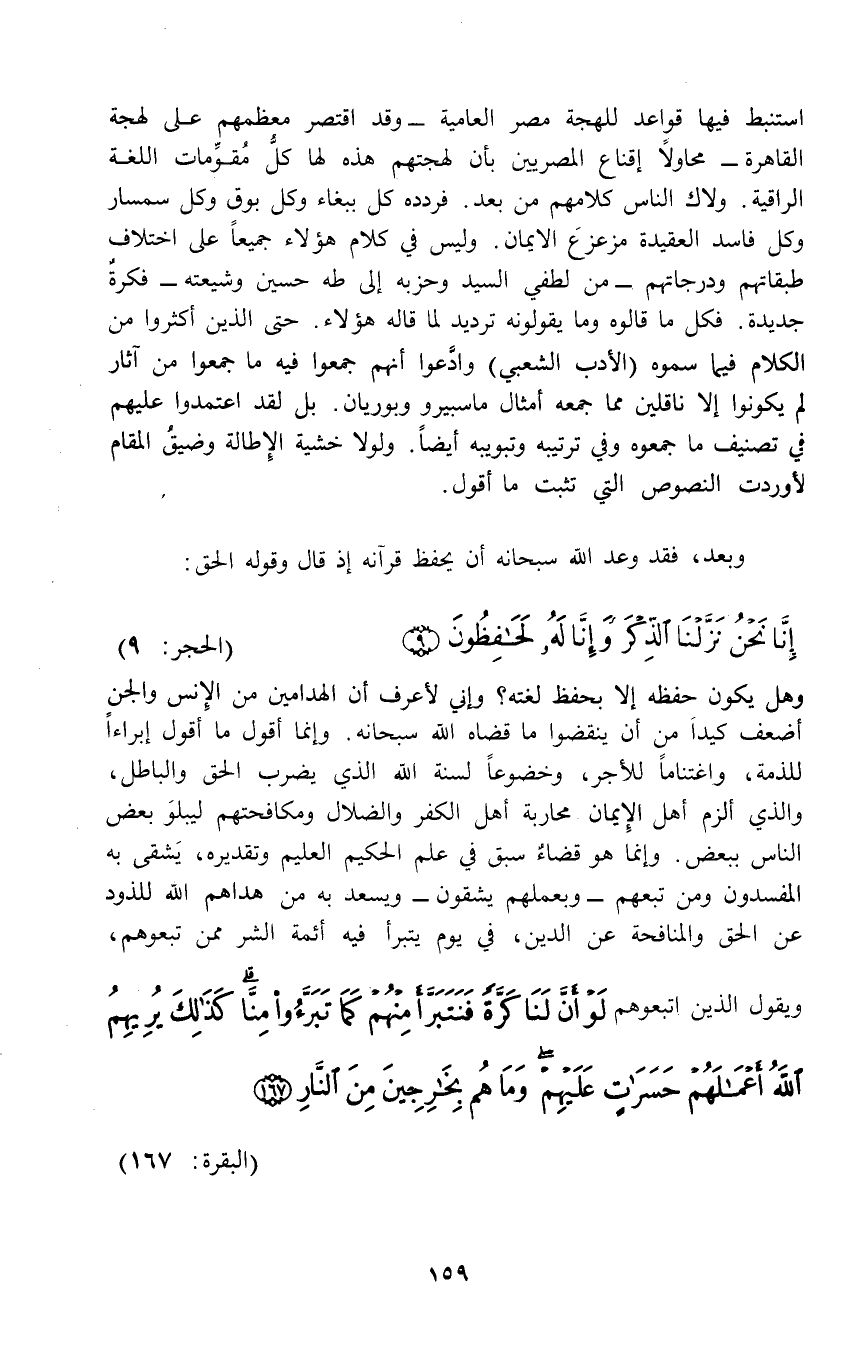 استنبط فيها قواعد للهجة مصر العامية ــ وقد اقتصر معظمهم على لهجة
القاهرة ــ محاولاً إقناع المصريين بأن لهجتهم هذه لها كلُّ مُقوِّمات اللغة
الراقية. ولاك الناس كلامهم من بعد. فردده كل ببغاء وكل بوق وكل سمسار
وكل فاسد العقيدة مزعزعَ الايمان. وليس في كلام هؤلاء جميعاً على اختلاف
طبقاتهم ودرجاتهم ــ من لطفي السيد وحزبه إلى طه حسين وشيعته ــ فكرةٌ
جديدة. فكل ما قالوه وما يقولونه ترديد لما قاله هؤلاء. حتى الذين أكثروا من
الكلام فيما سموه (الأدب الشعبي) وادَّعوا أنهم جمعوا فيه ما جمعوا من آثار
لم يكونوا إلا ناقلين مما جمعه أمثال ماسبيرو وبوريان. بل لقد اعتمدوا عليهم
في تصنيف ما جمعوه وفي ترتيبه وتبويبه أيضاً. ولولا خشية الإطالة وضيقُ المقام
لأوردت النصوص التي تثبت ما أقول.
وبعد، فقد وعد الله سبحانه أن يحفظ قرآنه إذ قال وقوله الحق:
إِنَّا نَحْنُ نَزَّلْنَا ٱلذِّكْرَ وَإِنَّا لَهُۥ لَحَـٰفِظُونَ ۝٩ (الحجر: ٩)
وهل يكون حفظه إلا بحفظ لغته؟ وإني لأعرف أن الهدامين من الإنس والجن
أضعف كيداً من أن ينقضوا ما قضاه الله سبحانه. وإنما أقول ما أقول إبراءاً
للذمة، واغتناماً للأجر، وخضوعاً لسنة الله الذي يضرب الحق والباطل،
والذي ألزم أهل الإيمان محاربة أهل الكفر والضلال ومكافحتهم ليبلوَ بعض
الناس ببعض. وإنما هو قضاءٌ سبق في علم الحكيم العليم وتقديره، يَشقى به
المفسدون ومن تبعهم ــ وبعملهم يشقون ــ ويسعد به من هداهم الله للذود
عن الحق والمنافحة عن الدين، في يوم يتبرأ فيه أئمة الشر ممن تبعوهم،
ويقول الذين اتبعوهم لَوْ أَنَّ لَنَا كَرَّةً فَنَتَبَرَّأَ مِنْهُمْ كَمَا تَبَرَّءُوا۟ مِنَّا ۗ كَذَٰلِكَ يُرِيهِمُ
ٱللَّهُ أَعْمَـٰلَهُمْ حَسَرَٰتٍ عَلَيْهِمْ ۖ وَمَا هُم بِخَـٰرِجِينَ مِنَ ٱلنَّارِ ۝١٦٧
(البقرة: ١٦٧)
١٥٩